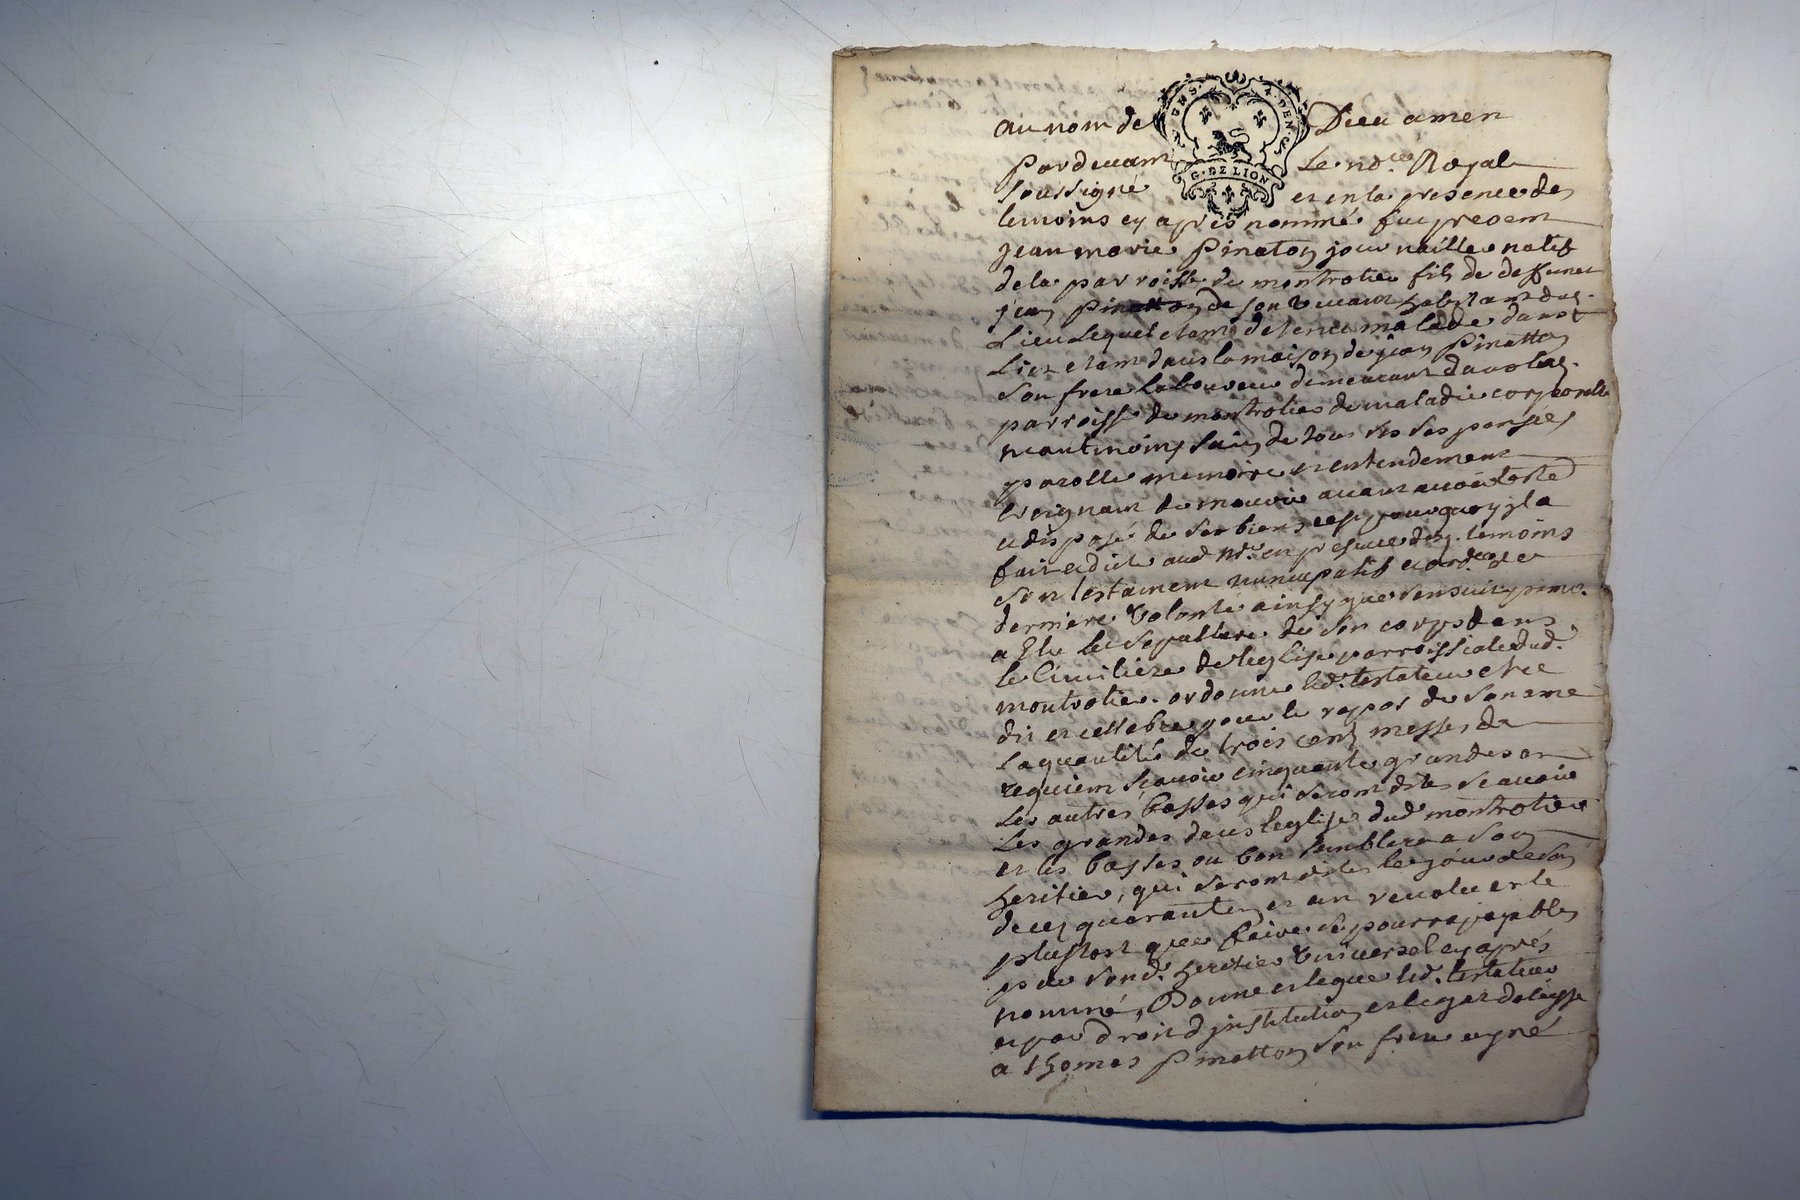 au nom de Dieu amen
G. DE LION
Pardevant Le no.re Royal
soussigné et en la presence des
temoins cy apres nommé fut present
jean marie Pinaton journaillier natif
de la parroisse de montrotier fils de deffunct
jean Pinatton de son vivant habitant dud.
Lieu Lequel etant detenu malade dans
Lict etant dans la maison de jean Pinatton
son frere laboureur demeurant
parroisse de montrotier de maladie corporelle
neantmoins sain de tous ses sens pensées
parolle memoire et entendement
Creignant de mourir avant avoir testé
et disposé de ses biens c'est pourquoy il a
fait et dicté aud. no.re en presence desd. temoins
son testament nuncupatif et ord.ce de
derniere volonté ainsy que s'ensuit primo.
a Elu la sepulture de son corps dans
le Cimitiere de leglise parroissiale dud.
montrotier. ordonne led. testateur etre
dit et cellebré pour le repos de son ame
la quantité de trois cent messes de
requiem scavoir cinquante grandes et
les autres basses qui seront dites scavoir
Les grandes dans leglise dud. montrotier
et les basses ou bon semblera a son
heritier, qui seront dites le jour de son
deces quarantein et an revolu et le
plustost que faire se pourra payables
par sond. heritier universel cy aprés
nommé, Donne et legue led. testateur
et par droit d'jnstitution et legat delaisse
a thomas Pinatton son frere ayné